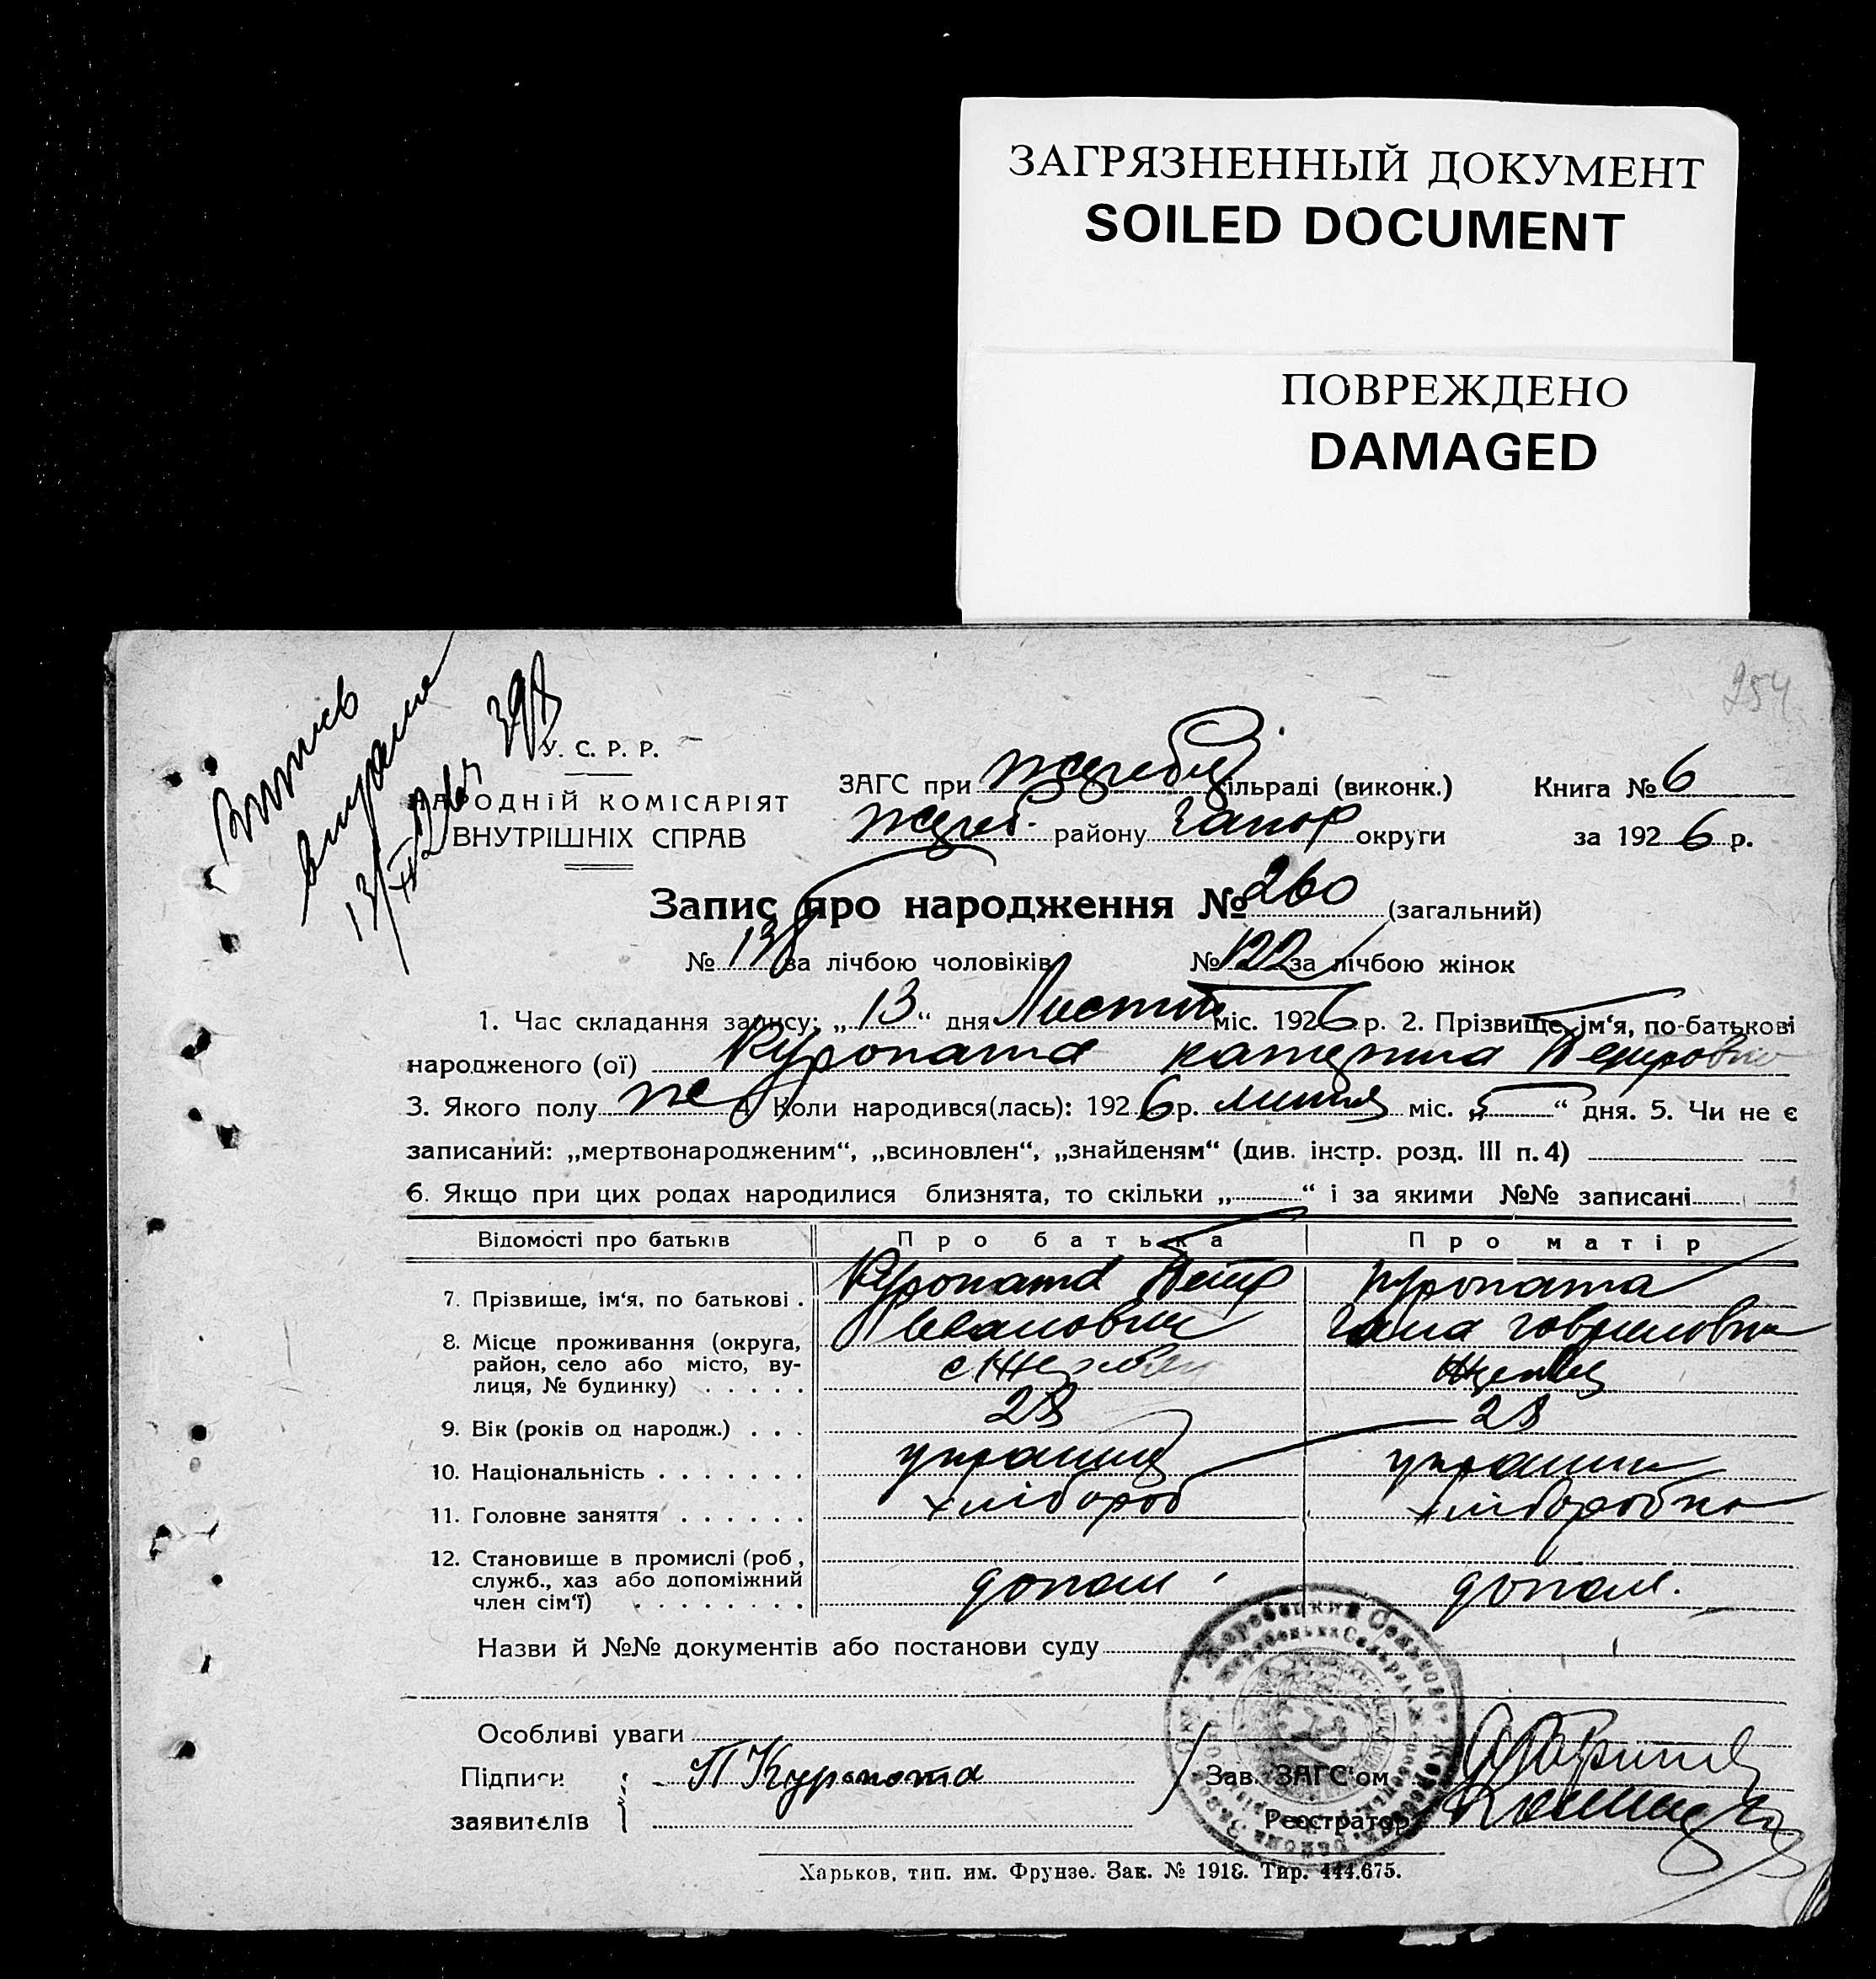 ЗАГРЯЗНЕННЫЙ ДОКУМЕНТ
SOILED DOCUMENT
ПОВРЕЖДЕНО
DAMAGED
254
У. С. Р. Р.
НАРОДНІЙ КОМІСАРІЯТ
ВНУТРІШНІХ СПРАВ
ЗАГС при сільраді (виконк.) Книга № 6
району Запор округи за 1926 р.
Запис про народження № 260 (загальний)
№ 138 за лічбою чоловіків № 122 за лічбою жінок
1. Час складання запису: „13“ дня Листоп міс. 1926 р. 2. Прізвище, ім‘я, по-батькові
народженого (ої) Куропата Катерина Петровна
3. Якого полу же 4. Коли народився(лась): 1926 р. липня міс. „5“ дня. 5. Чи не є
записаний: „мертвонародженим“, „всиновлен“, „знайденям“ (див. інстр. розд. III п. 4)
6. Якщо при цих родах народилися близнята, то скільки „ “ і за якими №№ записані
Відомості про батьків Про батька Про матір
7. Прізвище, ім‘я, по батькові . Куропата Петр Куропата
Иванович Гана Говриловна
8. Місце проживання (округа,
район, село або місто, ву-
лиця, № будинку) . . . . .
9. Вік (років од народж.) . . . 28 28
10. Національність . . . . . . . українец українка
11. Головне заняття . . . . . . хлібороб хліборобка
12. Становище в промислі (роб.,
служб., хаз або допоміжний
член сім‘ї) . . . . . . . . допом. допом.
Назви й №№ документів або постанови суду
Особливі уваги
Підписи П Куропота Зав. ЗАГС‘ом
заявителів Реєстратор
Харьков, тип. им. Фрунзе. Зак. № 1918. Тир. 444.675.